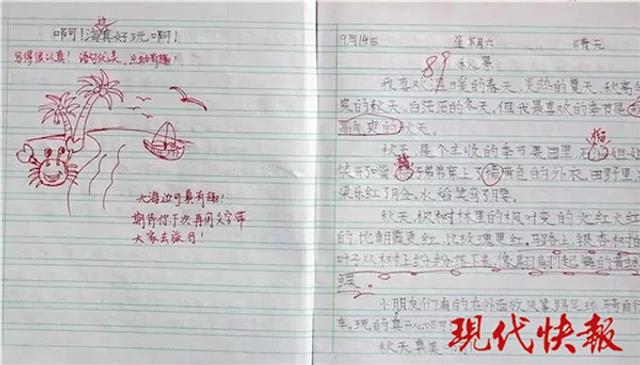 啊！海边真好玩啊！
写得很认真！语句优美，生动有趣！
大海边可真有趣！
期待你下次再用文字带
大家去旅行！
9月14日 星期六 晴天
89 秋景
我喜欢温暖的春天，炎热的夏天，秋高气
爽的秋天，白茫茫的冬天，但我最喜欢的季节是
高气爽的秋天。
秋天是个丰收的季节果园里
笑开了嘴 橘黄色的外衣，田野里
梁乐红了脸，水稻笑弯了腰
秋天，枫树林里的枫叶变的火红火红
的，比朝霞更红，比玫瑰更红。马路上，银杏树
叶子从树上纷纷落下来，像翩翩起舞的黄蝴
蝶
小朋友们有的在外面放风筝踢足球 骑自行
车，玩的真开心
秋天真美
現代快報